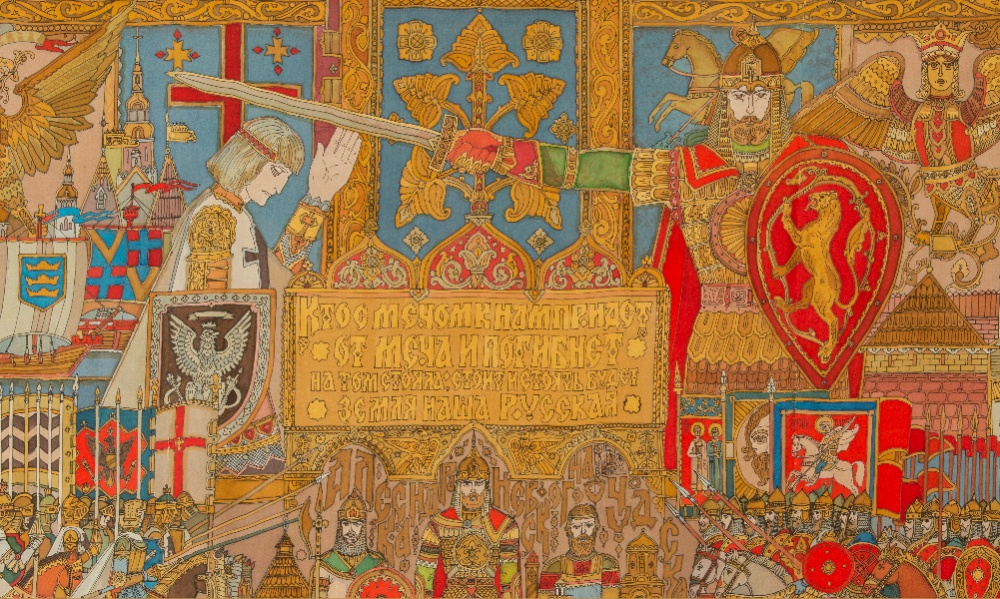 КТО С МЕЧОМ К НАМ ПРИДЕТ
ОТ МЕЧА И ПОГИБНЕТ
НА ТОМ СТОЯЛА, СТОИТ И СТОЯТЬ БУДЕТ
ЗЕМЛЯ НАША РУССКАЯ